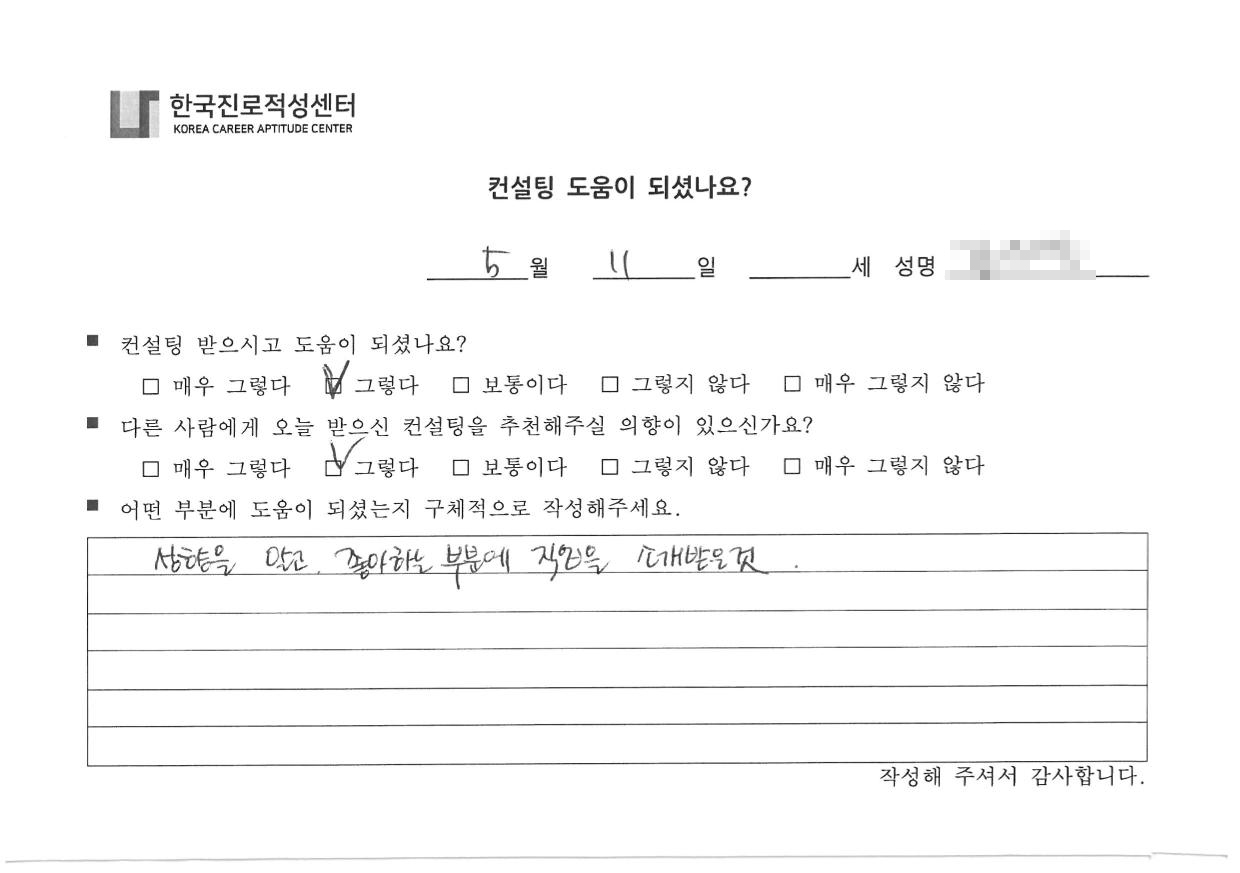 한국진로적성센터
KOREA CAREER APTITUDE CENTER
컨설팅 도움이 되셨나요?
5월 11일 세 성명
■ 컨설팅 받으시고 도움이 되셨나요?
□ 매우 그렇다 ☑ 그렇다 □ 보통이다 □ 그렇지 않다 □ 매우 그렇지 않다
■ 다른 사람에게 오늘 받으신 컨설팅을 추천해주실 의향이 있으신가요?
□ 매우 그렇다 ☑ 그렇다 □ 보통이다 □ 그렇지 않다 □ 매우 그렇지 않다
■ 어떤 부분에 도움이 되셨는지 구체적으로 작성해주세요.
알고, 좋아하는 부분에 직업을 소개받은것.
작성해 주셔서 감사합니다.